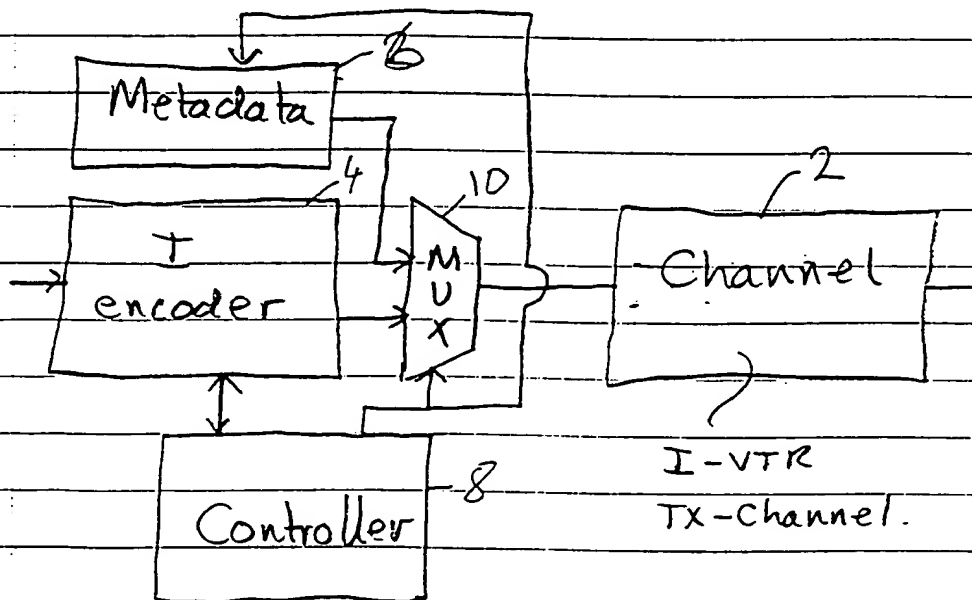 6
Metadata
4
10
2
I
encoder
M
U
X
Channel
8
Controller
I-VTR
TX-Channel.